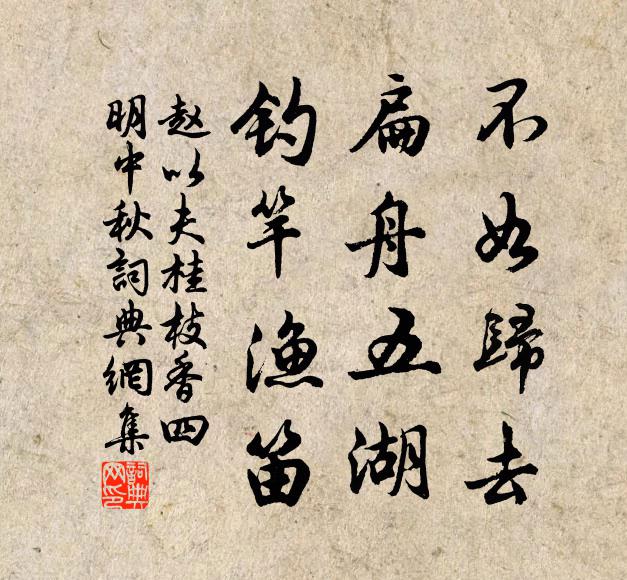 不如歸去
扁舟五湖
钓竿漁笛
赵以夫桂枝香四
明中秋詞典網集
詞典网印